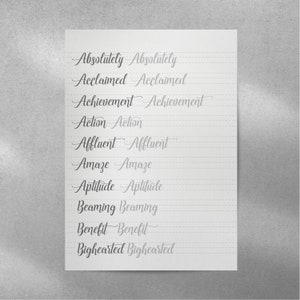 Absolutely Absolutely
Acclaimed Acclaimed
Achievement Achievement
Action Action
Affluent Affluent
Amaze Amaze
Aptitude Aptitude
Beaming Beaming
Benefit Benefit
Bighearted Bighearted